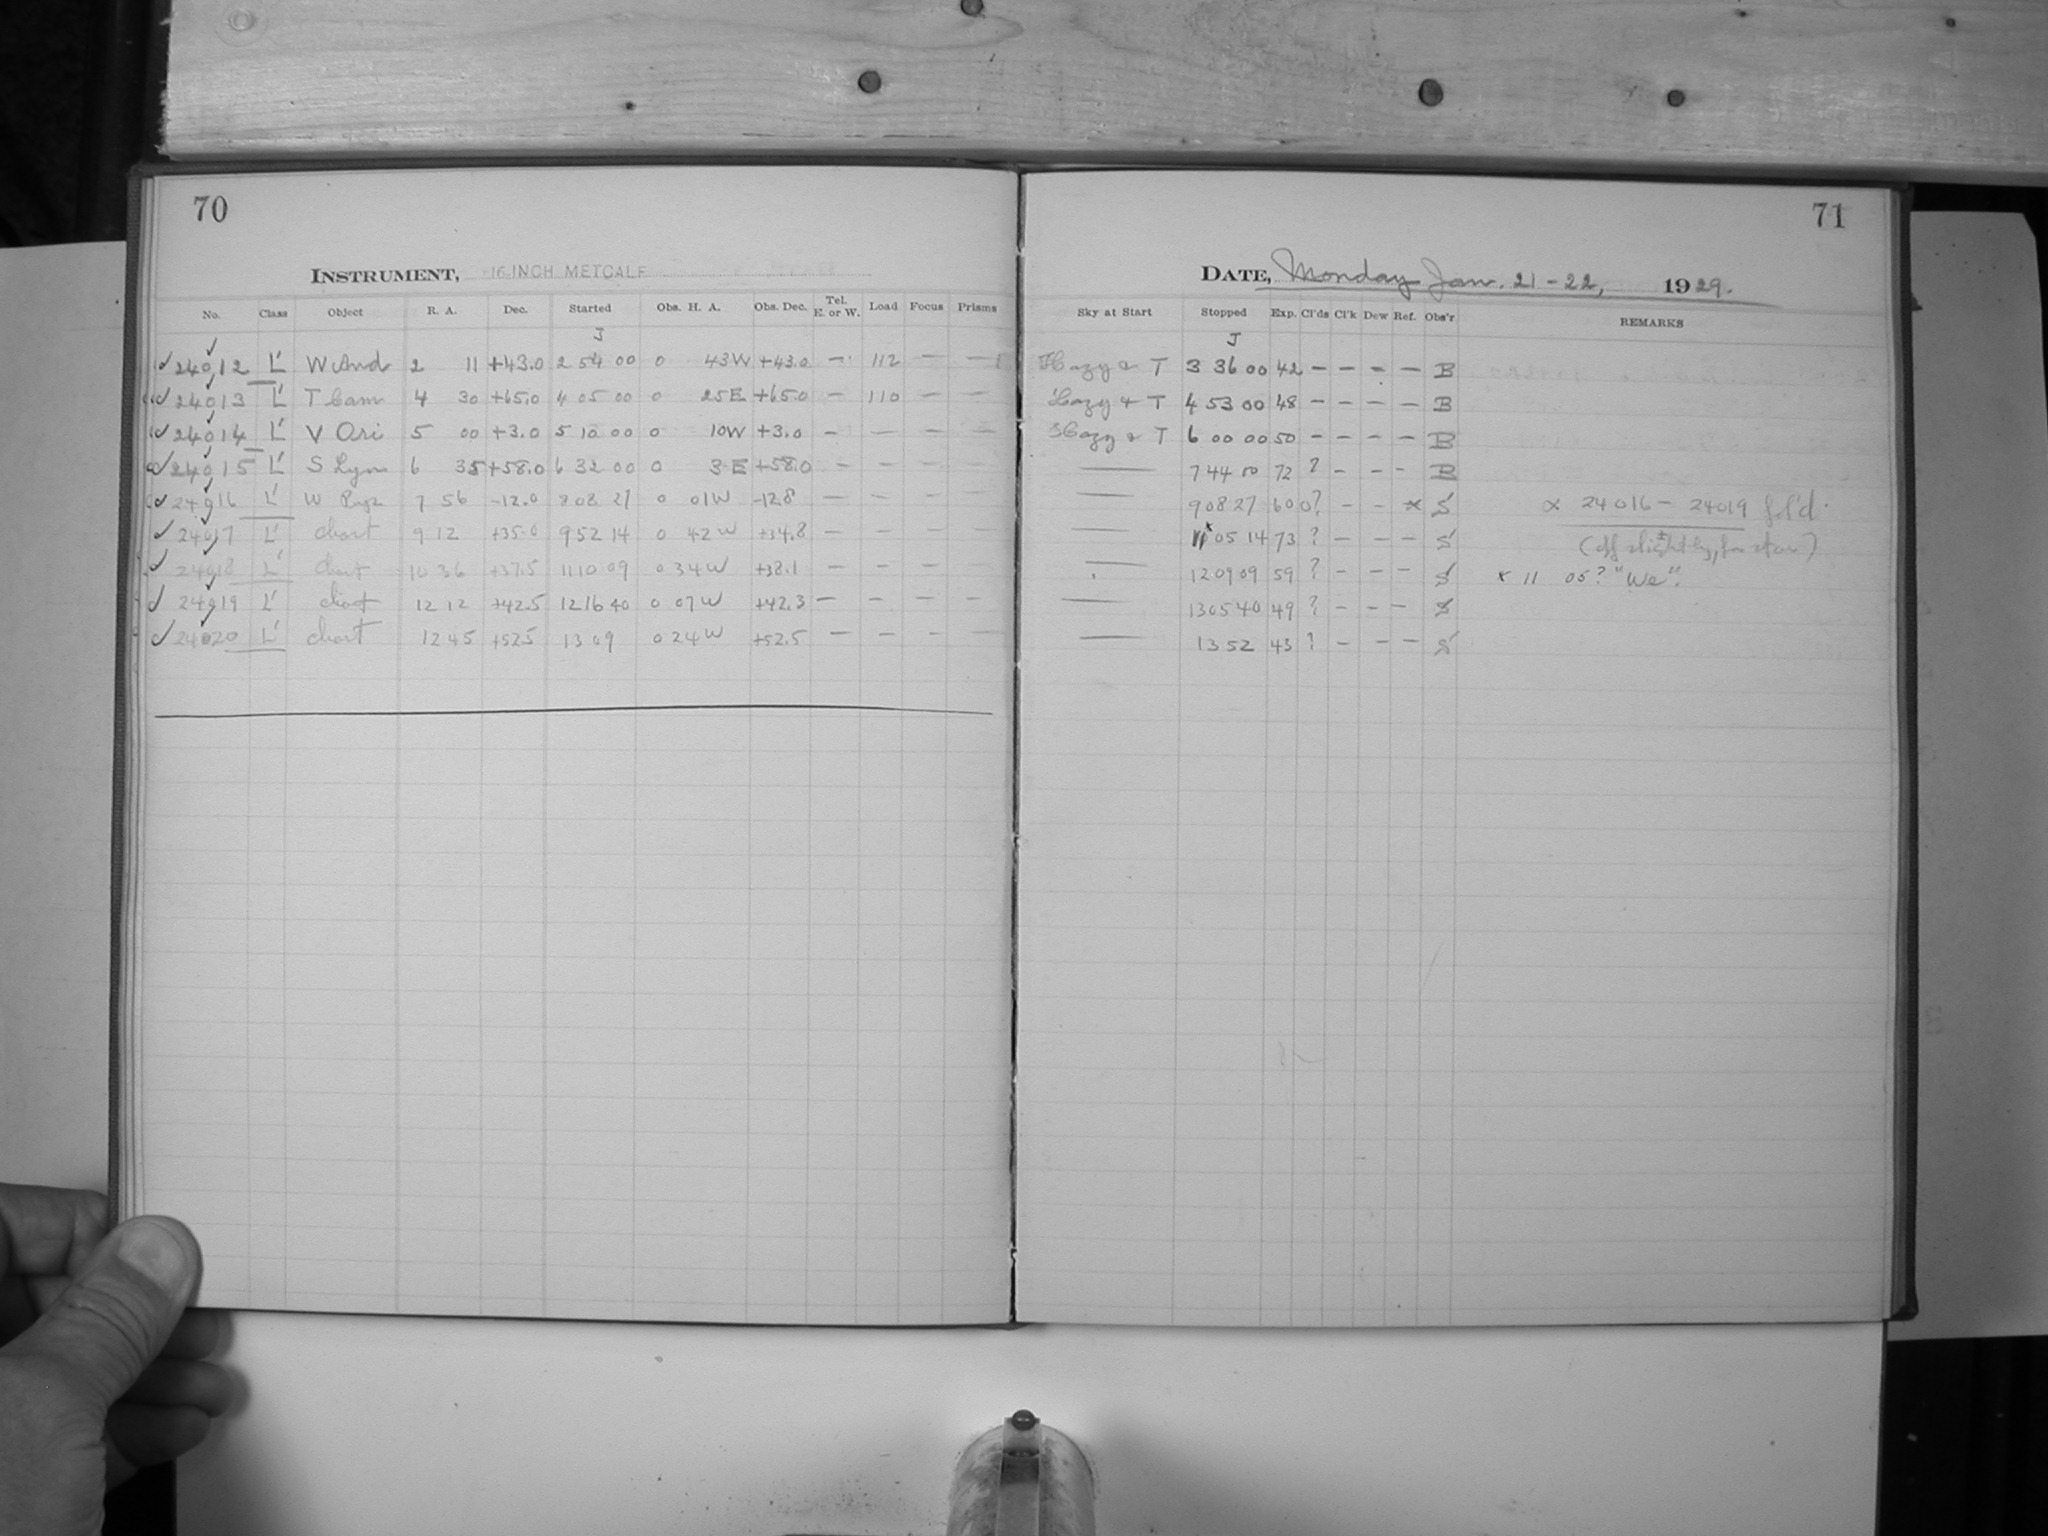 70
INSTRUMENT, 16-INCH METCALF
No. Class Object R. A. Dec. Started Obs. H. A. Obs. Dec. Tel. E. or W. Load Focus Prisms
J
✓ 24012 L' W And 2 11 +43.0 2 54 00 0 43W +43.0 — 112 — —
✓ 24013 L' T Cam 4 30 +65.0 4 05 00 0 25E +65.0 — 110 — —
✓ 24014 L' V Ori 5 00 +3.0 5 10 00 0 10W +3.0 — — — —
✓ 24015 L' S Lyn 6 35 +58.0 6 32 00 0 3 E +58.0 — — — —
✓ 24016 L' 7 56 -12.0 8 08 27 0 01W -12.8 — — — —
✓ 24017 L' chart 9 12 +35.0 9 52 14 0 42W +34.8 — — — —
✓ 24018 L' chart 10 36 +37.5 11 10 09 0 34W +38.1 — — — —
✓ 24019 L' chart 12 12 +42.5 12 16 40 0 07W +42.3 — — — —
✓ 24020 L' chart 12 45 +52.5 13 09 0 24W +52.5 — — — —
71
DATE, Monday Jan. 21-22, 1929.
Sky at Start Stopped Exp. Cl'ds Cl'k Dew Ref. Obs'r REMARKS
J
Hazy & T 3 36 00 42 — — — — B
Hazy & T 4 53 00 48 — — — — B
Hazy & T 6 00 00 50 — — — — B
— 7 44 00 72 ? — — — B
— 9 08 27 60 0? — — * S 24016 - 24019 fol'd.
— 11 05 14 73 ? — — — S (off slightly,
12 09 09 59 ? — — — S x 11 05? "We".
— 13 05 40 49 ? — — — S
— 13 52 43 ? — — — S